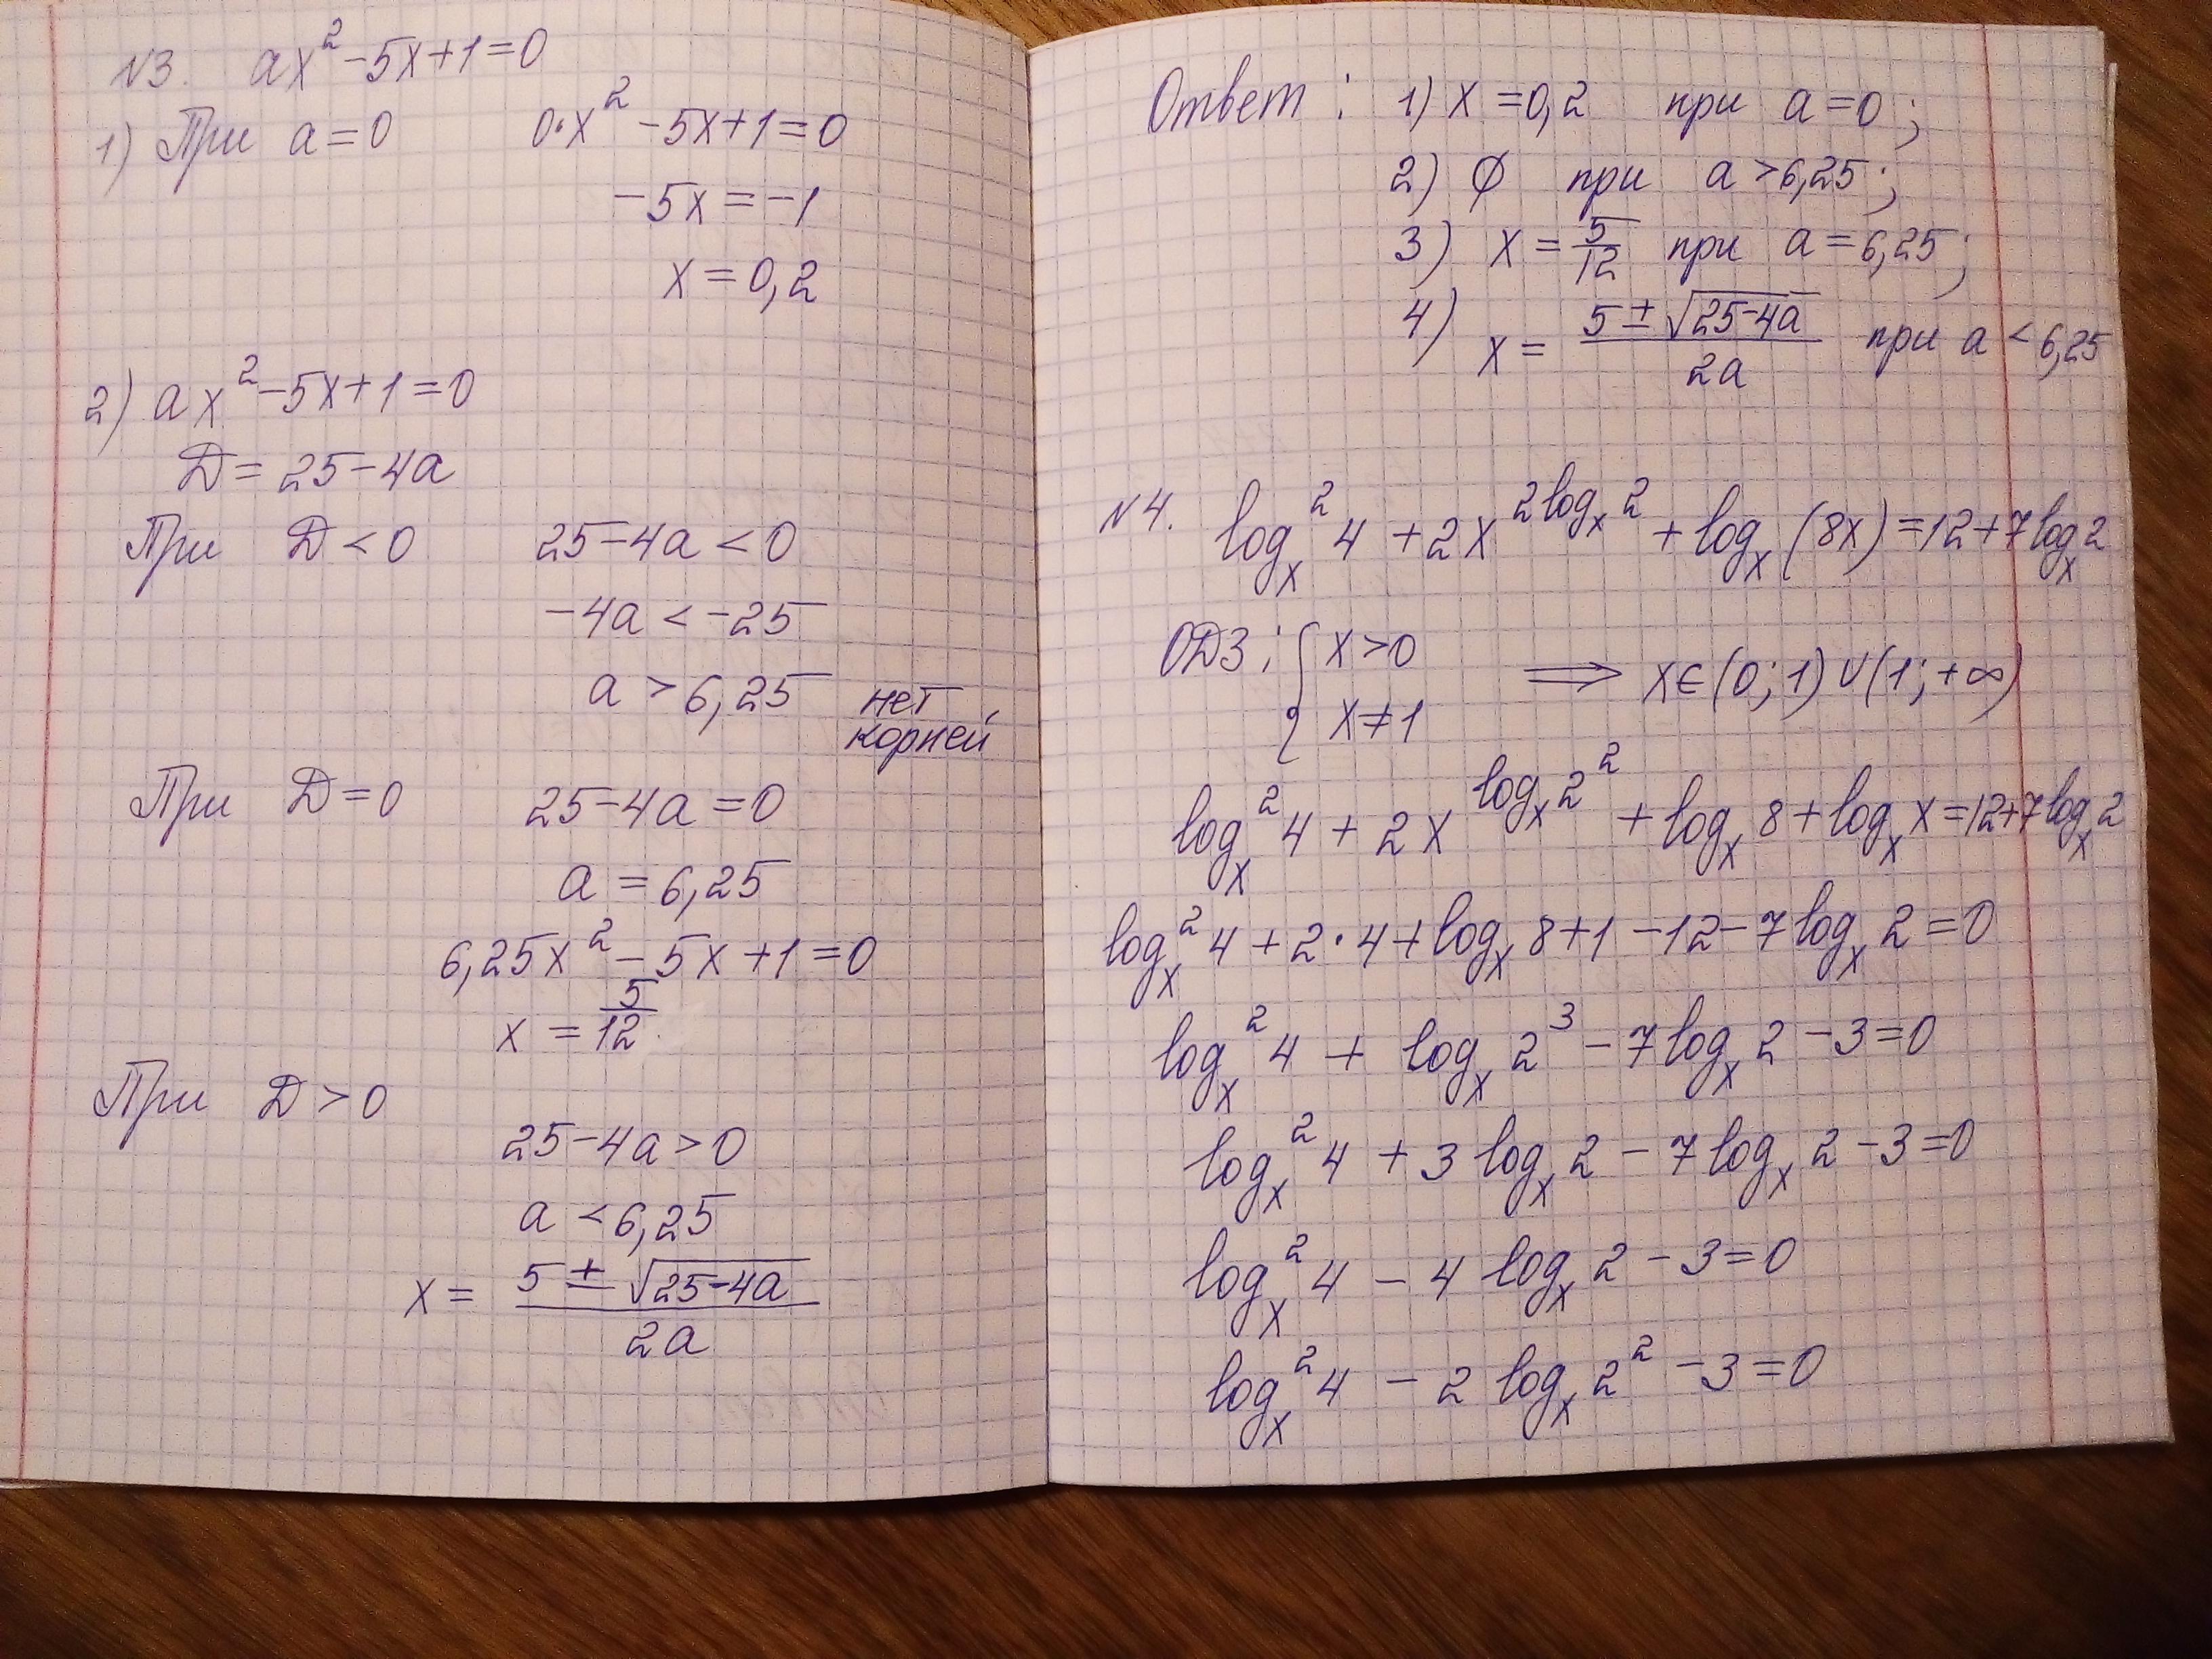 №3. ax² - 5x + 1 = 0
1) При a = 0 0·x² - 5x + 1 = 0
-5x = -1
x = 0,2
2) ax² - 5x + 1 = 0
D = 25 - 4a
При D < 0 25 - 4a < 0
-4a < -25
a > 6,25 нет корней
При D = 0 25 - 4a = 0
a = 6,25
6,25x² - 5x + 1 = 0
x = 5/12
При D > 0
25 - 4a > 0
a < 6,25
x = (5 ± √(25 - 4a))/(2a)
Ответ: 1) x = 0,2 при a = 0;
2) ∅ при a > 6,25;
3) x = 5/12 при a = 6,25;
4) x = (5 ± √(25 - 4a))/(2a) при a < 6,25
№4. logₓ² 4 + 2x^(2logₓ 2) + logₓ (8x) = 12 + 7logₓ 2
ОДЗ: { x > 0
x ≠ 1 ⟹ x ∈ (0; 1) ∪ (1; +∞)
logₓ² 4 + 2x^(logₓ 2²) + logₓ 8 + logₓ x = 12 + 7logₓ 2
logₓ² 4 + 2·4 + logₓ 8 + 1 - 12 - 7logₓ 2 = 0
logₓ² 4 + logₓ 2³ - 7logₓ 2 - 3 = 0
logₓ² 4 + 3logₓ 2 - 7logₓ 2 - 3 = 0
logₓ² 4 - 4logₓ 2 - 3 = 0
logₓ² 4 - 2logₓ 2² - 3 = 0